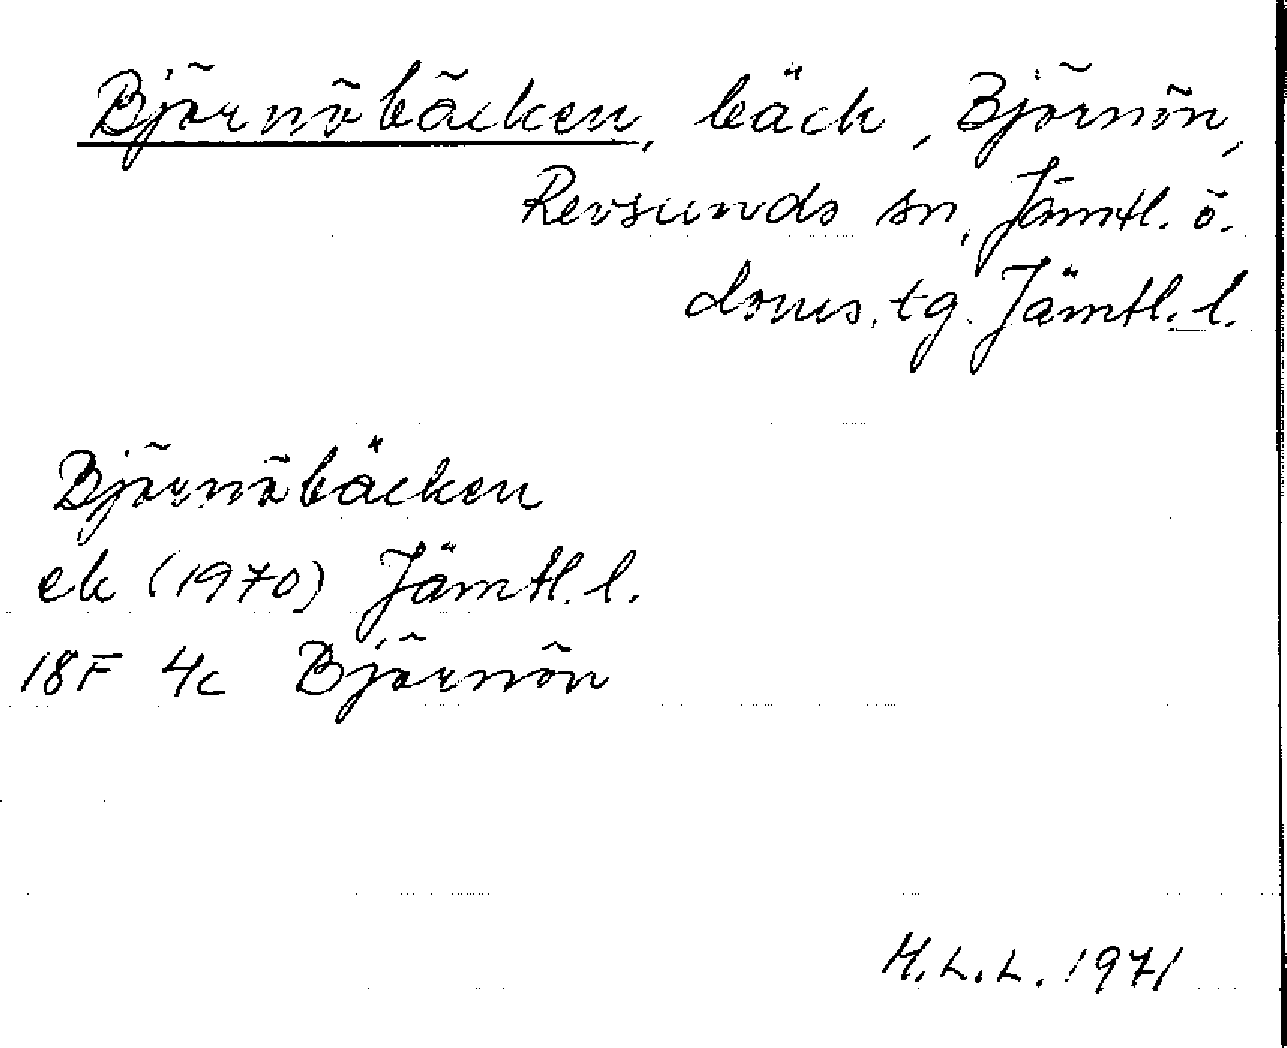 Björnöbäcken, bäck, Björnön,
Revsunds sn, Jämtl. ö.
doms. tg. Jämtl. l.
Björnöbäcken
ek (1970) Jämtl. l.
18F 4c Björnön
M.L.L. 1971